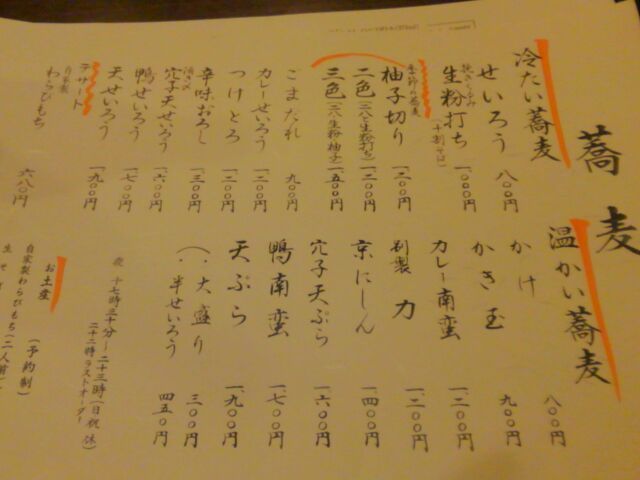 蕎麦
冷たい蕎麦
せいろう 八〇〇円
挽きぐるみ
生粉打ち(十割そば) 一、〇〇〇円
季節の蕎麦
柚子切り 一、二〇〇円
二色(二八・生粉打ち) 一、二〇〇円
三色(二八・生粉・柚子) 一、五〇〇円
ごまだれ 九〇〇円
カレーせいろう 一、二〇〇円
つけとろ 一、二〇〇円
辛味おろし 一、三〇〇円
活き〆
穴子天せいろう 一、六〇〇円
鴨せいろう 一、七〇〇円
天せいろう 一、九〇〇円
デザート
自家製
わらびもち 六八〇円
温かい蕎麦
かけ 八〇〇円
かき玉 九〇〇円
カレー南蛮 一、二〇〇円
別製 力 一、二〇〇円
京にしん 一、四〇〇円
穴子天ぷら 一、六〇〇円
鴨南蛮 一、七〇〇円
天ぷら 一、九〇〇円
(・大盛り 三〇〇円
・半せいろう 四五〇円
夜 十七時三十分〜二十三時(日祝休)
二十二時ラストオーダー
お土産
自家製わらびもち(二人前)
(予約制)